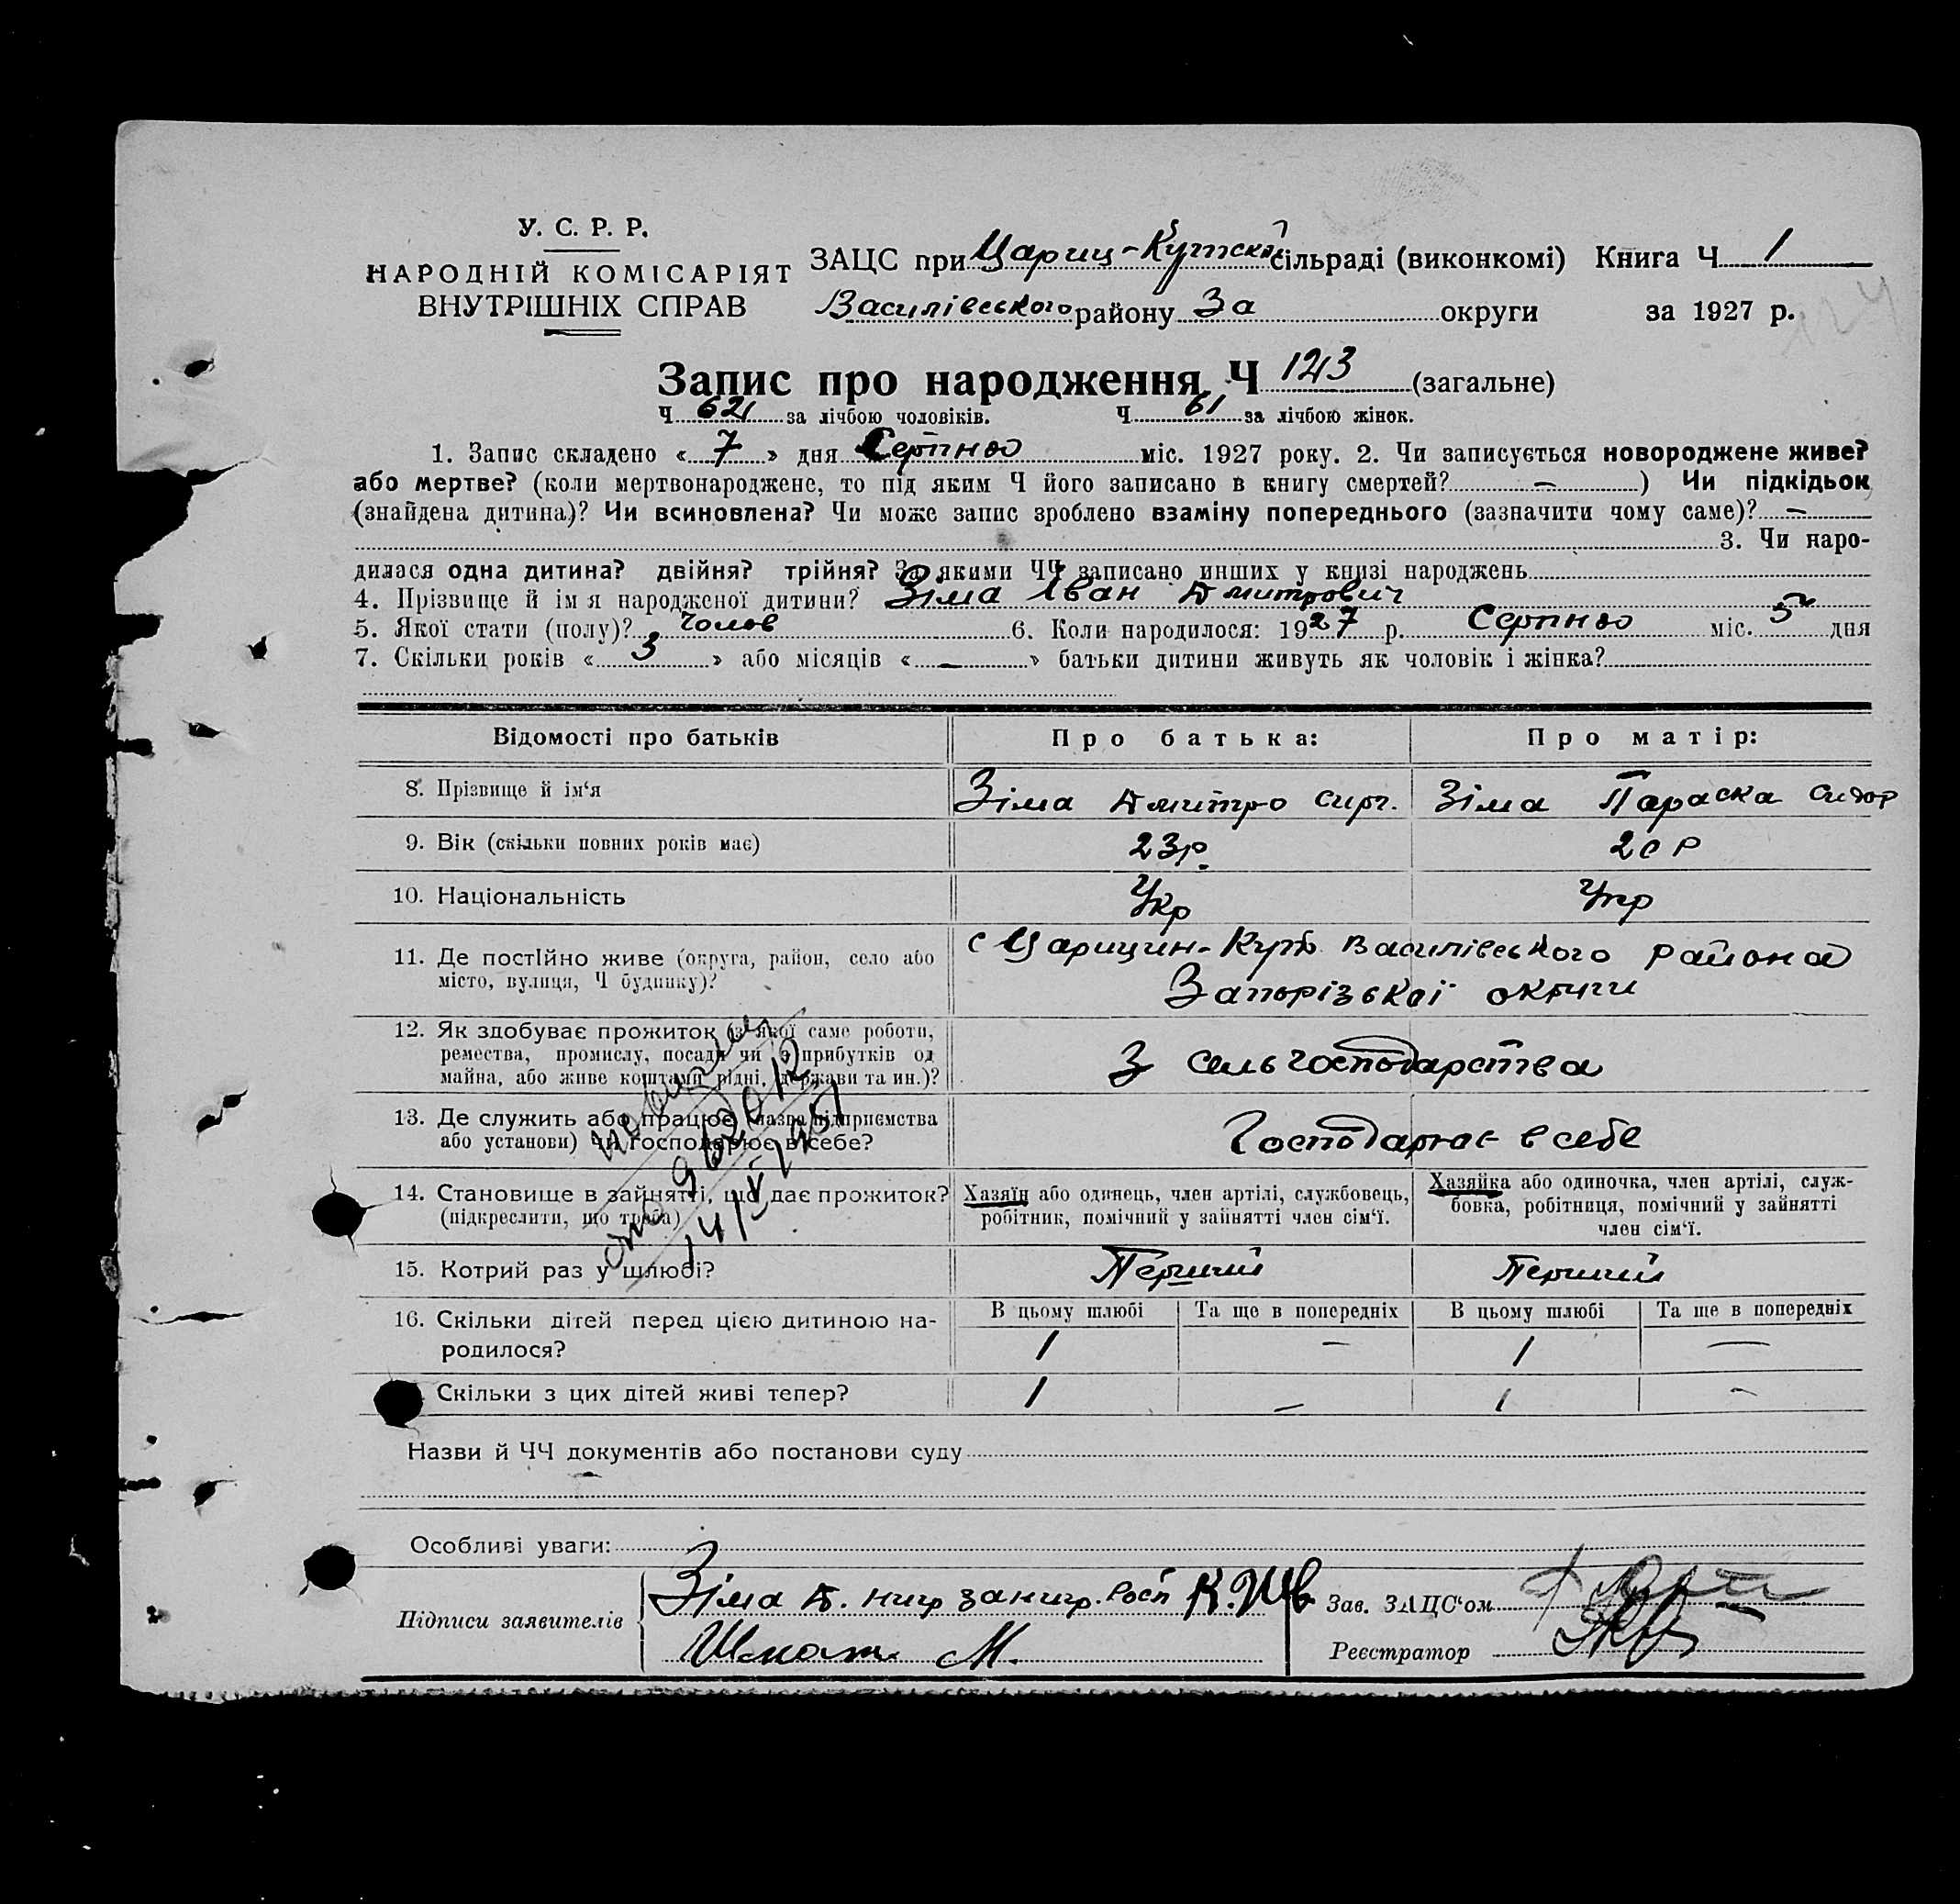 У. С. Р. Р.
НАРОДНІЙ КОМІСАРІЯТ
ВНУТРІШНІХ СПРАВ
ЗАЦС при Цариц-Кутскій сільраді (виконкомі) Книга Ч 1
Василівського району За округи за 1927 р.
Запис про народження Ч 123 (загальне)
Ч 62 за лічбою чоловіків. Ч 61 за лічбою жінок.
1. Запис складено « 7 » дня Серпня міс. 1927 року. 2. Чи записується новороджене живе?
або мертве? (коли мертвонароджене, то під яким Ч його записано в книгу смертей? — ) Чи підкідьок
(знайдена дитина)? Чи всиновлена? Чи може запис зроблено взаміну попереднього (зазначити чому саме)? —
3. Чи наро-
дилася одна дитина? двійня? трійня? За якими ЧЧ записано инших у книзі народжень
4. Прізвище й імя народженої дитини? Зіма Іван Дмитрович
5. Якої стати (полу)? чолов 6. Коли народилося: 1927 р. Серпня міс. 5 дня
7. Скільки років « 3 » або місяців « — » батьки дитини живуть як чоловік і жінка?
Відомості про батьків Про батька: Про матір:
8. Прізвище й ім'я Зіма Дмитро Зіма Параска Сидор
9. Вік (скільки повних років має) 23р. 20р
10. Національність Укр Укр
11. Де постійно живе (округа, район, село або
місто, вулиця, Ч будинку)?
с Царицин-Кут Василівського района
Запорізької округи
12. Як здобуває прожиток (з якої саме роботи,
ремества, промислу, посади чи з прибутків од
майна, або живе коштами рідні, держави та ин.)?
З сельгосподарства
13. Де служить або працює (назва підприємства
або установи) чи господарює в себе?
Господарює в себе
14. Становище в зайнятті, що дає прожиток?
(підкреслити, що треба)
Хазяїн або одинець, член артілі, службовець,
робітник, помічний у зайнятті член сім'ї.
Хазяйка або одиночка, член артілі, служ-
бовка, робітниця, помічний у зайнятті
член сім'ї.
15. Котрий раз у шлюбі? Перший Перший
16. Скільки дітей перед цією дитиною на-
родилося?
В цьому шлюбі Та ще в попередніх В цьому шлюбі Та ще в попередніх
1 — 1 —
Скільки з цих дітей живі тепер? 1 — 1 —
Назви й ЧЧ документів або постанови суду
Особливі уваги:
Підписи заявителів
Зіма Д.
М.
Зав. ЗАЦС'ом
Реєстратор